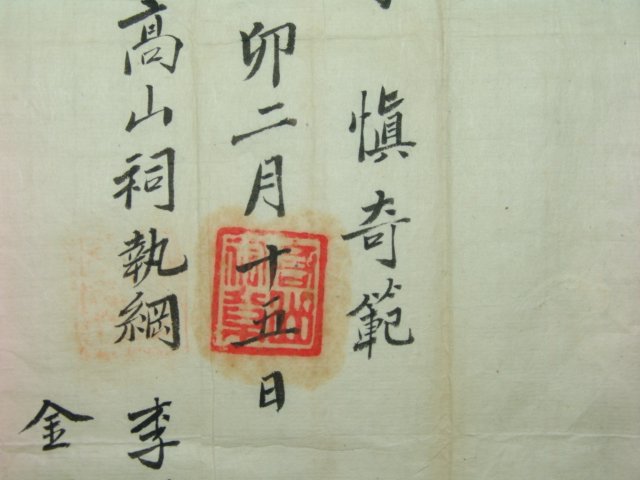 愼奇範
卯二月十五日
高山祠執綱 李
金